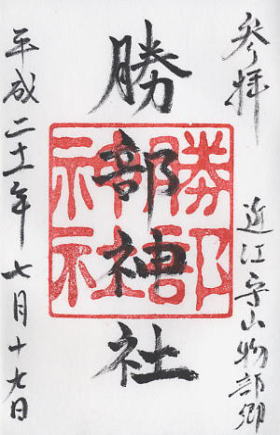 参拝
近江守山物部郷
勝部神社
勝部神社
平成二十一年七月十九日